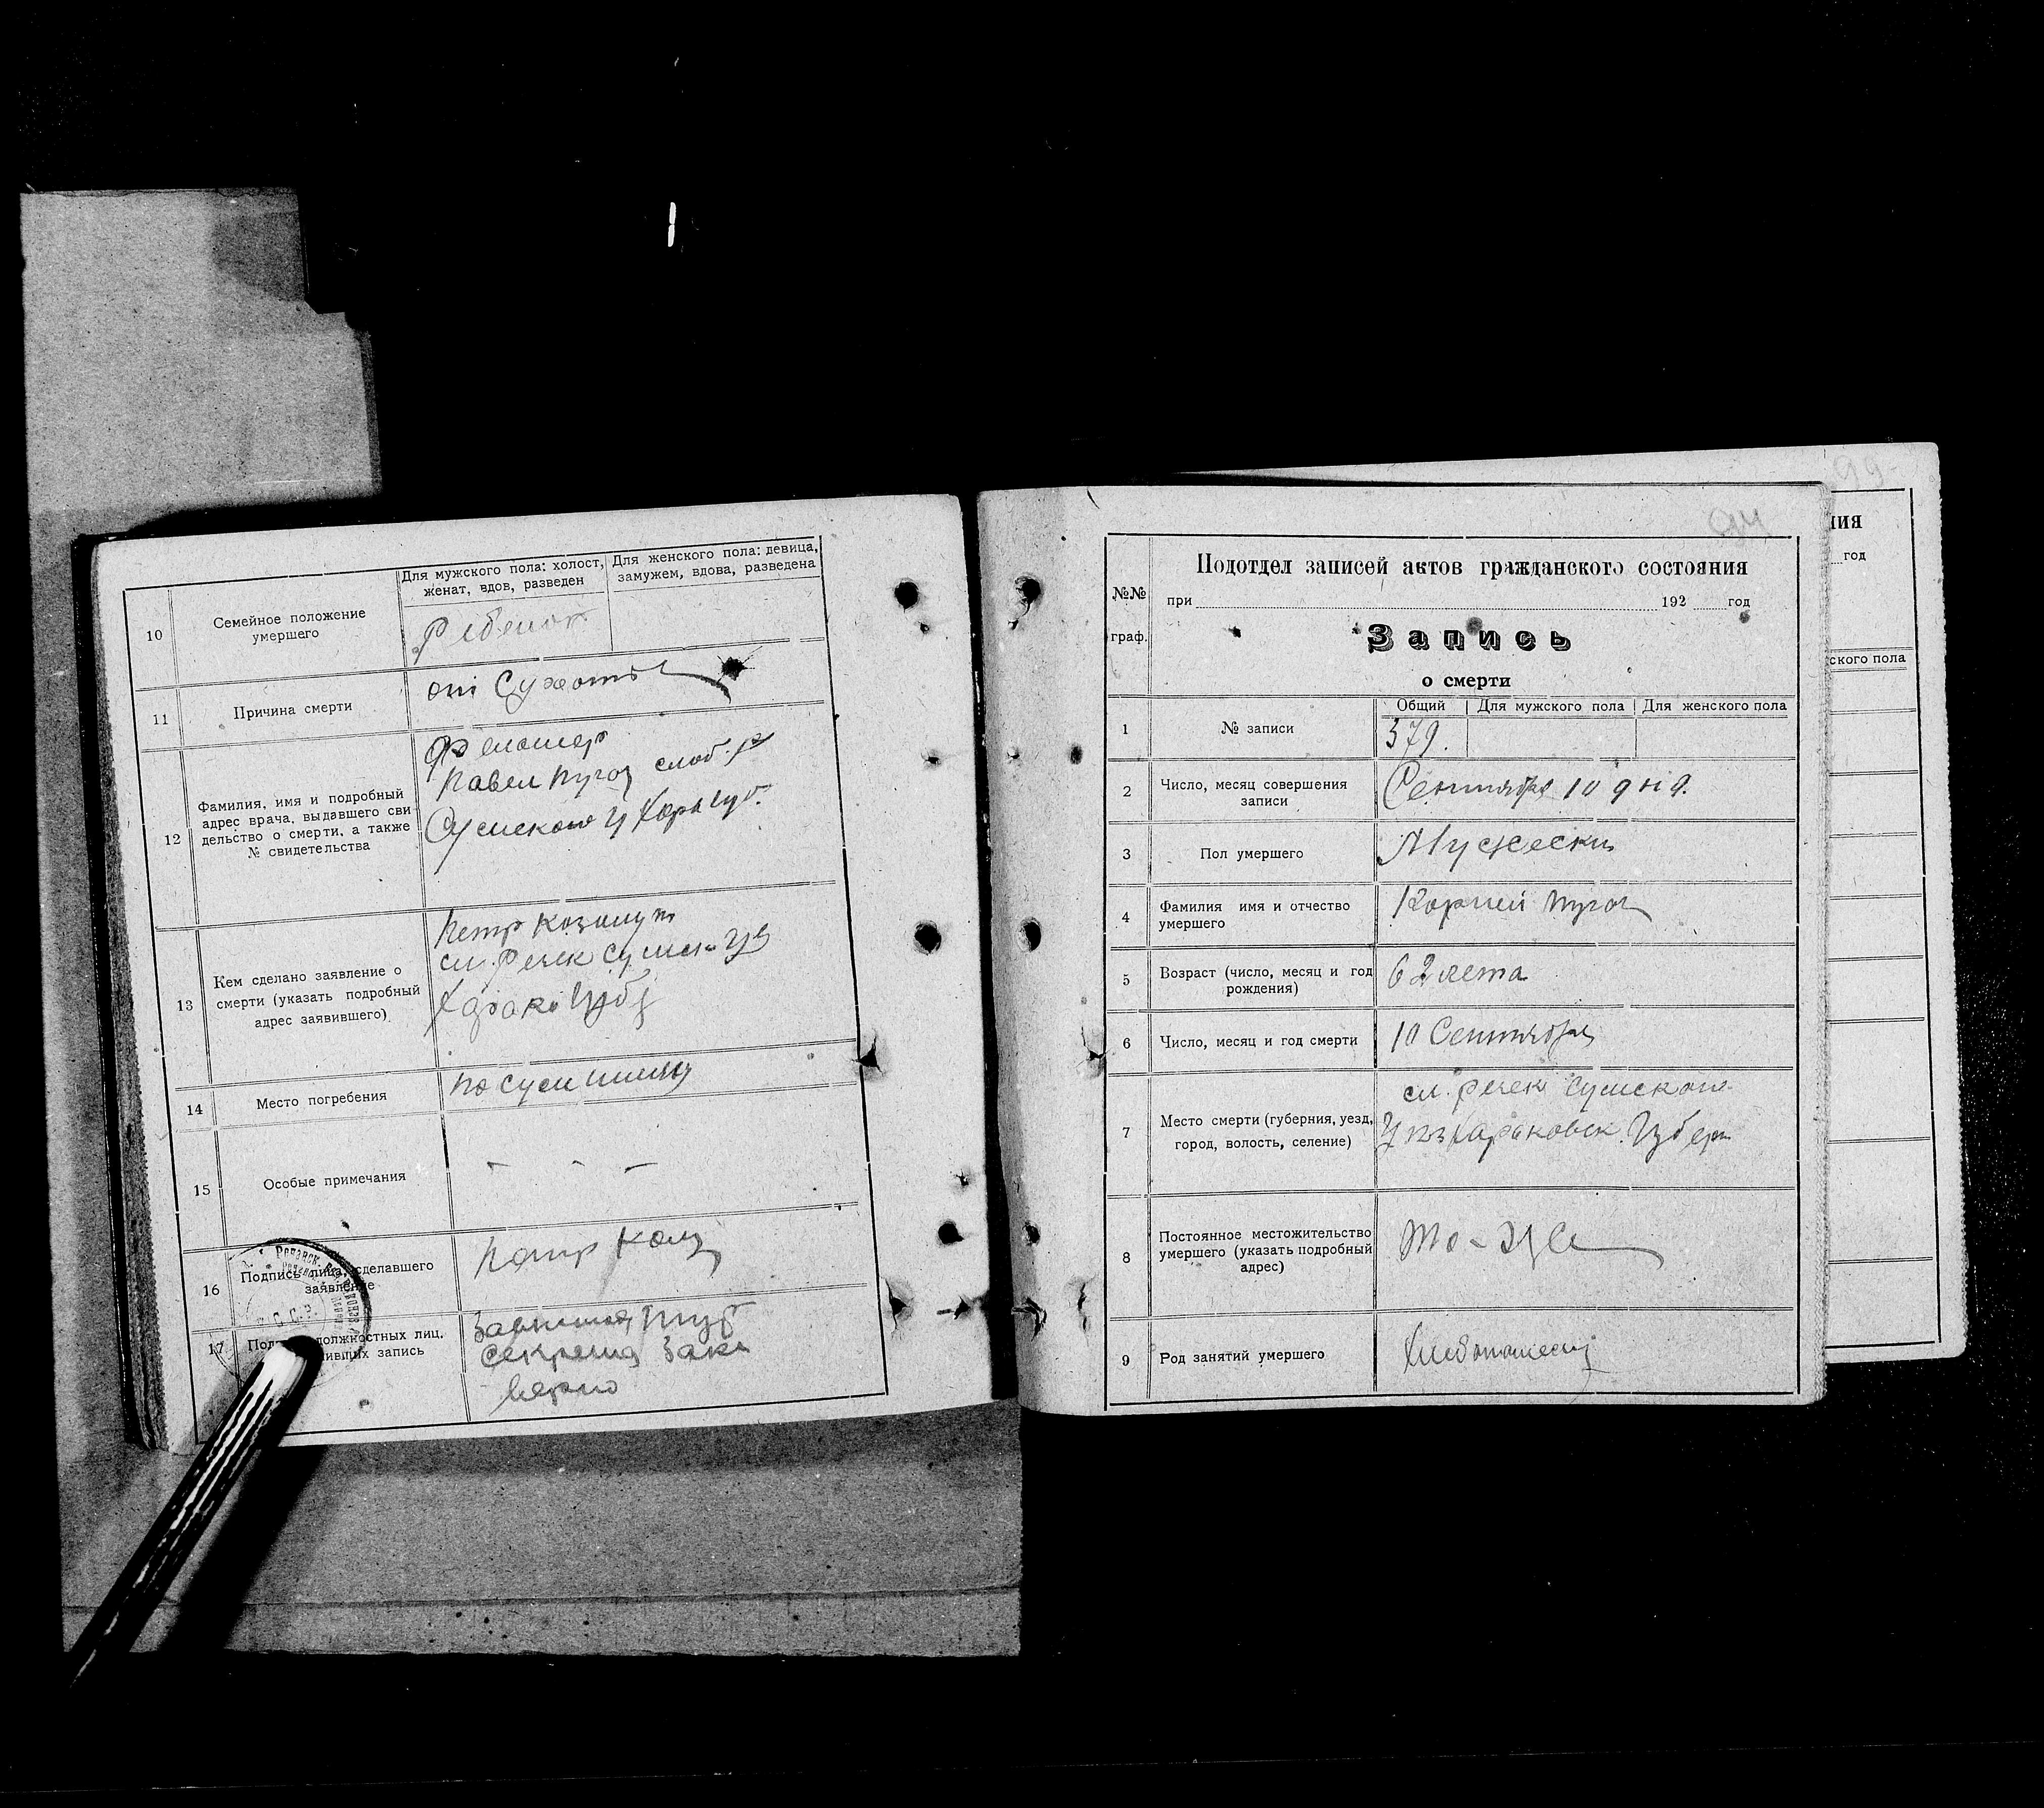 10
Семейное положение
умершего
Для мужского пола: холост,
женат, вдов, разведен
Для женского пола: девица,
замужем, вдова, разведена
Ребенок
11
Причина смерти
от Сухоты
12
Фамилия, имя и подробный
адрес врача, выдавшего сви
дельство о смерти, а также
№ свидетельства
Павел Пугоч слоб. р
Сумского у Харь губ.
13
Кем сделано заявление о
смерти (указать подробный
адрес заявившего)
Петр
сл. Речек Сумск
14
Место погребения
15
Особые примечания
- - -
16
Подпись лица, сделавшего
заявление
Петр Коз
17
должностных лиц.
запись
Секрета Зак
Верно
94
№№
граф.
Подотдел записей актов гражданского состояния
при 192 год
Запись
о смерти
1
№ записи
Общий
Для мужского пола
Для женского пола
379.
2
Число, месяц совершения
записи
Сентября 10 дня.
3
Пол умершего
Мужески
4
Фамилия имя и отчество
умершего
Корней Пугоч
5
Возраст (число, месяц и год
рождения)
62 лета
6
Число, месяц и год смерти
10 Сентября
7
Место смерти (губерния, уезд,
город, волость, селение)
сл. Речек Сумского
Харьковск. Губерн
8
Постоянное местожительство
умершего (указать подробный
адрес)
То-же
9
Род занятий умершего
99
ния
год
ского пола